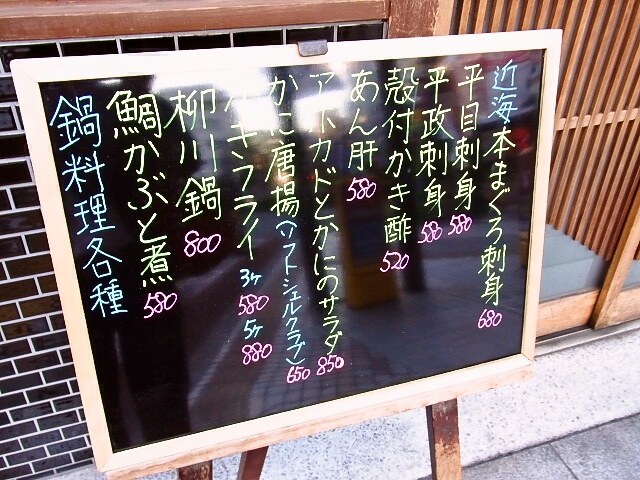 近海本まぐろ刺身 680
平目刺身 580
平政刺身 580
殻付かき酢 520
あん肝 580
アボカドとかにのサラダ 850
かに唐揚(ソフトシェルクラブ) 650
カキフライ 3ケ 580 5ケ 880
柳川鍋 800
鯛かぶと煮 580
鍋料理各種